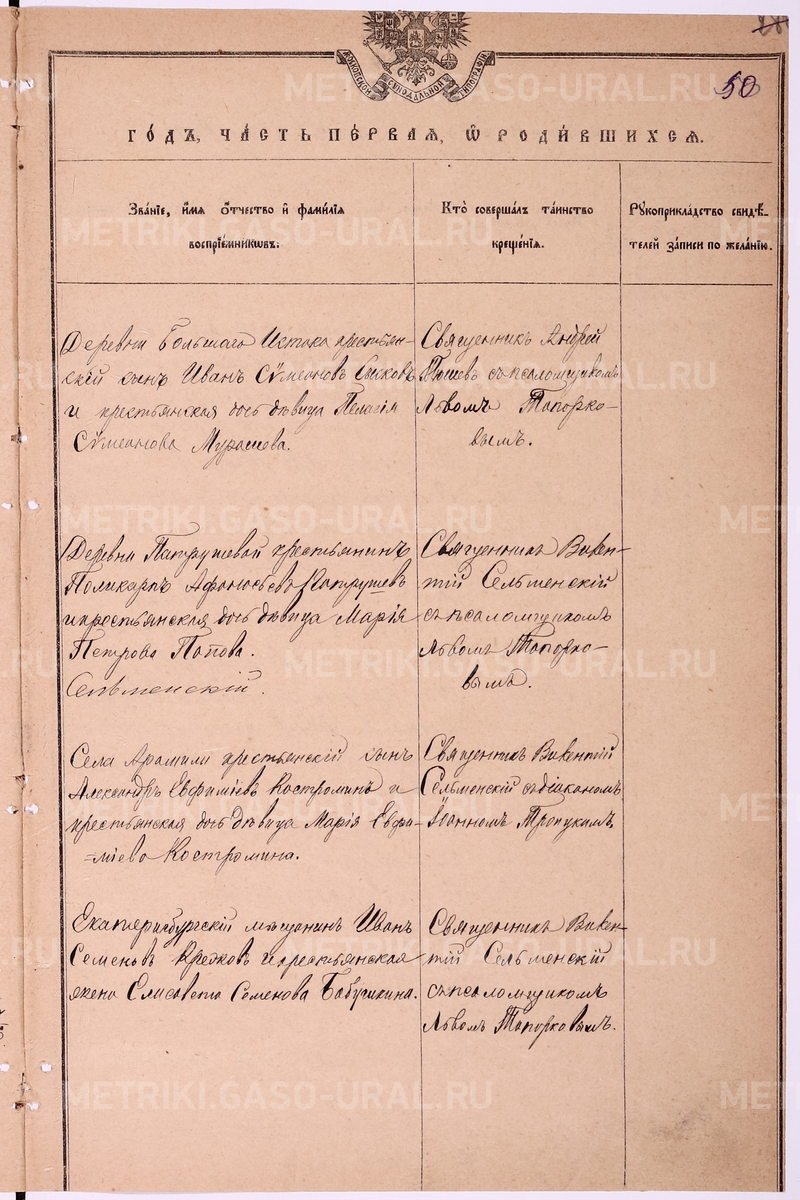 50
МОСКОВСКОЙ СѴНОДАЛЬНОЙ ТИПОГРАФІИ
ГО́ДЪ, ЧА́СТЬ ПЕ́РВАЯ, Ѽ РОДИ́ВШИХСЯ.
Зва́ніе, и́мя о́тчество и фами́лія
воспріе́мниковъ.
Кто̀ соверша́лъ та́инство
креще́нія.
Рукоприкла́дство свидѣ́-
телей за́писи по жела́нію.
Деревни Большаго Истока крестьян-
скій сынъ Иванъ Сѵмеоновъ
и крестьянская дочь дѣвица Пелагія
Сѵмеонова Мурашева.
Священникъ Андрей
съ псаломщикомъ
Львомъ Топорко-
вымъ.
Деревни Патрушевой крестьянинъ
Поликарпъ Афонасьевъ Патрушевъ
и крестьянская дочь дѣвица Марія
Петрова Попова.
Сельменскій.
Священникъ Викен-
тій Сельменскій
съ псаломщикомъ
Львомъ Топорко-
вымъ.
Села Арамили крестьянскій сынъ
Александръ Евфиміевъ Костроминъ и
крестьянская дочь дѣвица Марія Евфи-
=міева Костромина.
Священникъ Викентій
Сельменскій съ діакономъ
Іоанномъ Троицкимъ
Екатеринбургскій мѣщанинъ Иванъ
Семеновъ и крестьянская
жена Елисавета Семенова Бабушкина.
Священникъ Викен-
тій Сельменскій
съ псаломщикомъ
Львомъ Топорковымъ.
METRIKI.GASO-URAL.RU